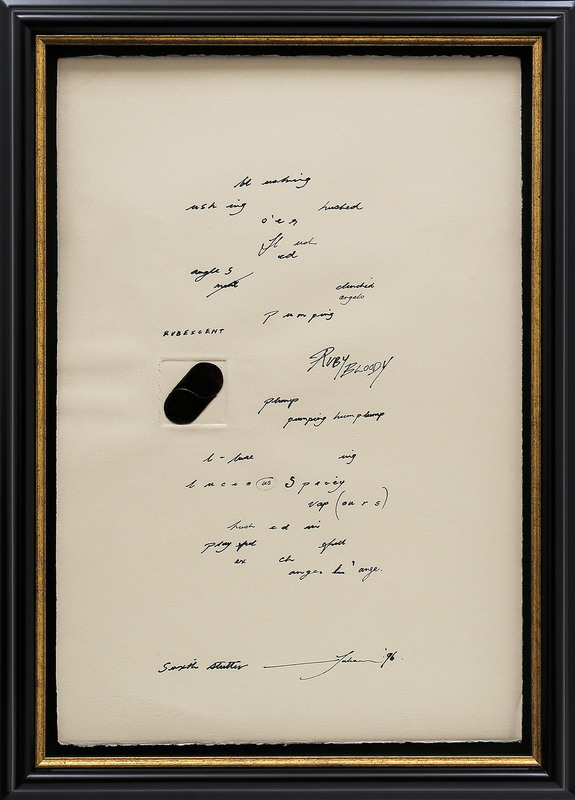 bl ushing
ush ing hushed
o'e r
fl ush
ed
angle s
clenched
angels
P um ping
RUBESCENT
RUBY BLOODY
plump
pumping humplump
l - luxe ing
l u c c o us S p o i c y
vap (ou r s)
hush e d in
play ful spell
ex ch
ange.
Sixth stutter '96